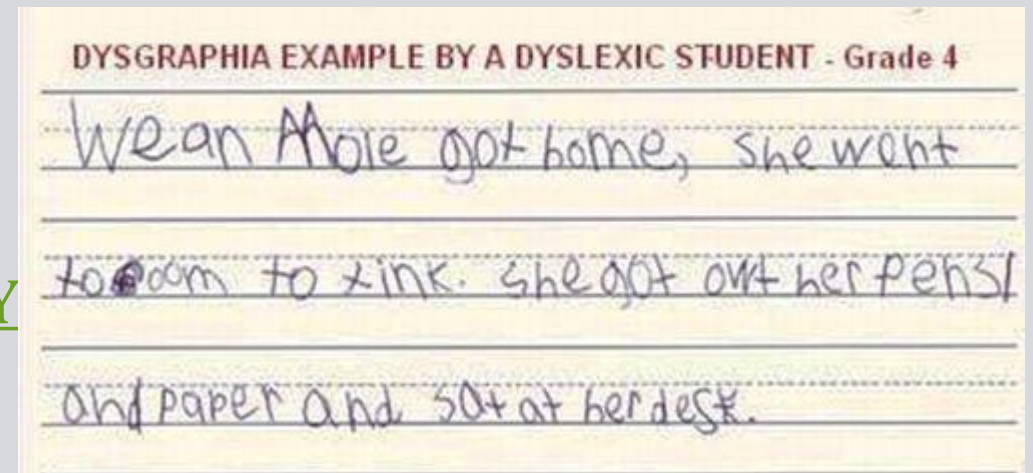 DYSGRAPHIA EXAMPLE BY A DYSLEXIC STUDENT - Grade 4
Wean Mole got home, she went
to room to tink. she got owt her pensl
Y
and paper and sat at her desk.